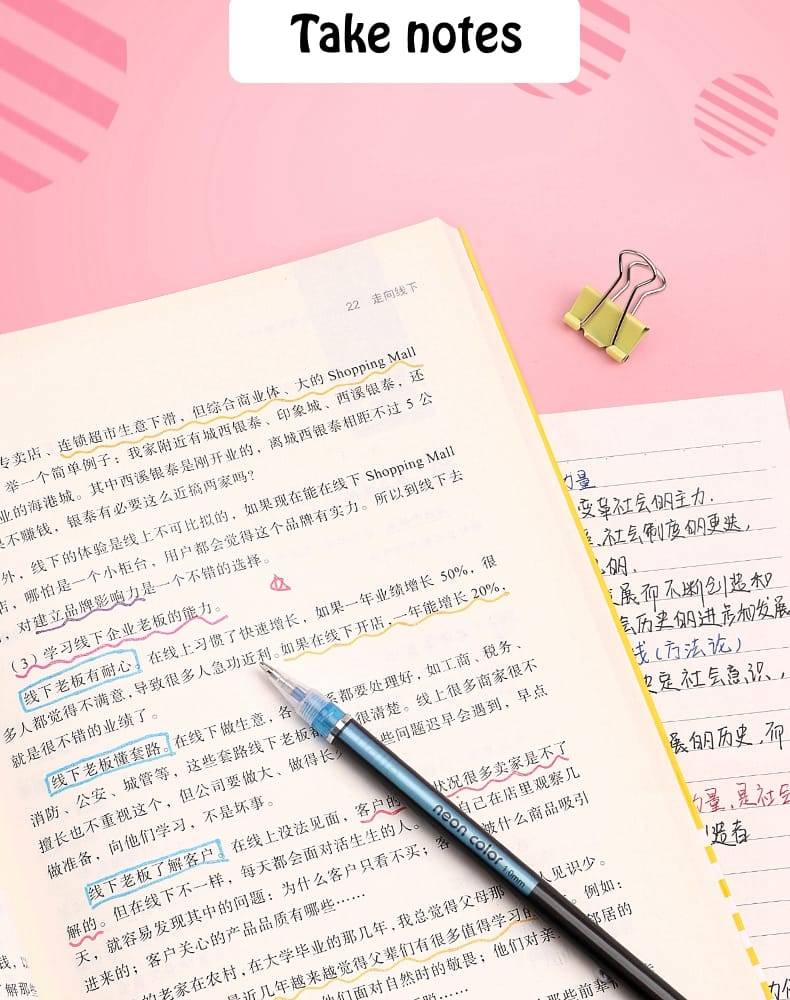 Take notes
22 走向线下
专卖店、连锁超市生意下滑，但综合商业体、大的 Shopping Mall
举一个简单例子：我家附近有城西银泰、印象城、西溪银泰，还
业的海港城。其中西溪银泰是刚开业的，离城西银泰相距不过 5 公
不赚钱，银泰有必要这么近搞两家吗？
外，线下的体验是线上不可比拟的，如果现在能在线下 Shopping Mall
店，哪怕是一个小柜台，用户都会觉得这个品牌有实力。所以到线下去
，对建立品牌影响力是一个不错的选择。
（3）学习线下企业老板的能力。
线下老板有耐心。在线上习惯了快速增长，如果一年业绩增长 50%，很
多人都觉得不满意，导致很多人急功近利。如果在线下开店，一年能增长 20%，
就是很不错的业绩了。
线下老板懂套路。在线下做生意，各 系都要处理好，如工商、税务、
消防、公安、城管等，这些套路线下老板都 很清楚。线上很多商家很不
擅长也不重视这个，但公司要做大、做得长 些问题迟早会遇到，早点
做准备，向他们学习，不是坏事。
线下老板了解客户。在线上没法见面，客户的 状况很多卖家是不了
解的。但在线下不一样，每天都会面对活生生的人。 自己在店里观察几
天，就容易发现其中的问题：为什么客户只看不买；客 被什么商品吸引
进来的；客户关心的产品品质有哪些……
的老家在农村，在大学毕业的那几年，我总觉得父母那 人见识少。
最近几年越来越觉得父辈们有很多值得学习的 。例如：
他们面对自然时的敬畏；他们对亲 邻居的
那些前辈们
neon color 1.0mm
力量
变革社会的主力.
社会制度的更迭,
的.
展而不断创造和
会历史的进步和发展
线(方法论)
决定社会意识,
展的历史,而
力量,是社会
造者